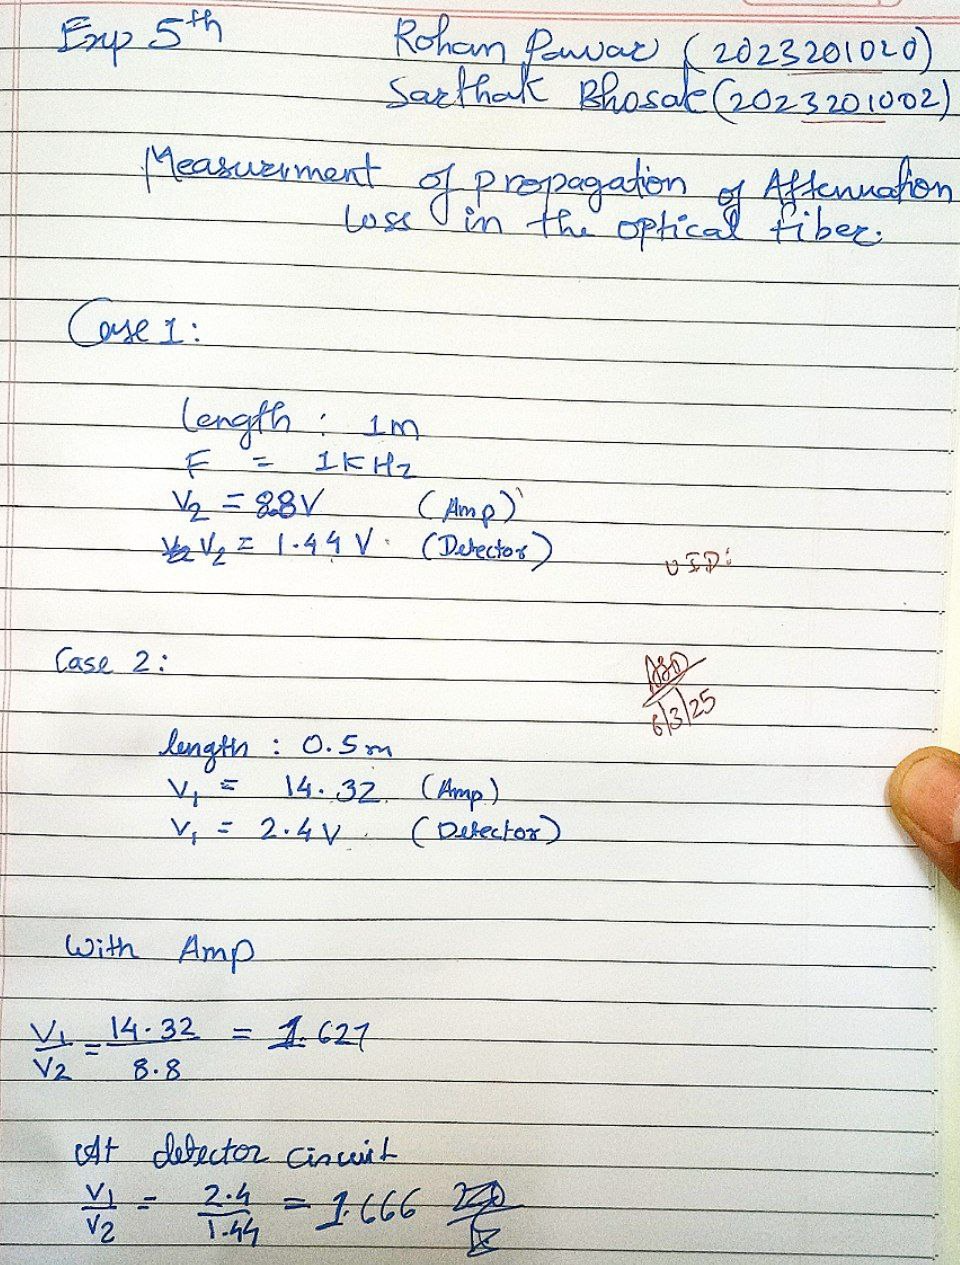 Exp 5th
Rohan Pawar (2023201020)
Sarthak Bhosale (2023201002)
Measurment of propagation of Attenuation
loss in the optical fiber.
Case 1:
length : 1m
F = 1KHz
V2 = 8.8V (Amp)
V2 = 1.44 V. (Detector)
UID:
Case 2:
6/3/25
length : 0.5m
V1 = 14.32 (Amp)
V1 = 2.4 V. (Detector)
With Amp
V1/V2 = 14.32/8.8 = 1.627
At detector circuit
V1/V2 = 2.4/1.44 = 1.666